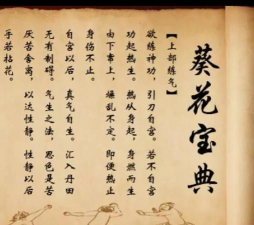 葵花宝典
【上部练气】
欲练神功，引刀自宫。若不自宫
功起热生。热从身起，身燃而生
由下窜上，燥乱不定。即便热止
身伤不止。
自宫以后，真气自生。汇入丹田
无有制碍。气生之法，思色是苦
厌苦舍离，以达性静。性静以后
乎若枯花。